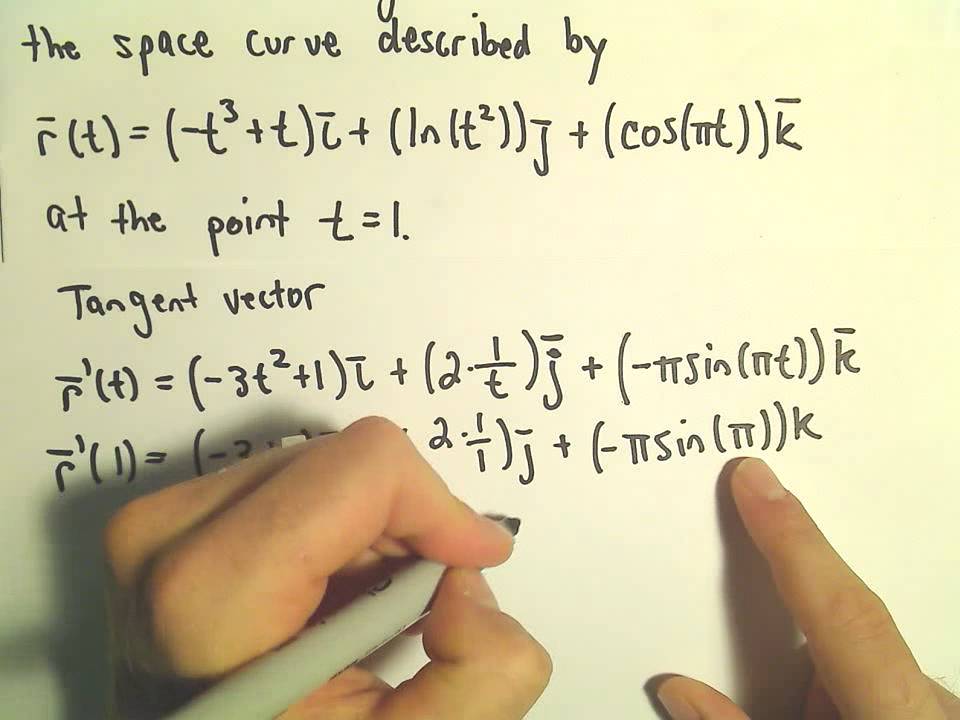 the space curve described by
r̄(t) = (-t³+t)ī + (ln(t²))j̄ + (cos(πt))k̄
at the point t=1.
Tangent vector
r̄'(t) = (-3t²+1)ī + (2·1/t)j̄ + (-πsin(πt))k̄
r̄'(1) = (-3 2·1/1)j̄ + (-πsin(π))k